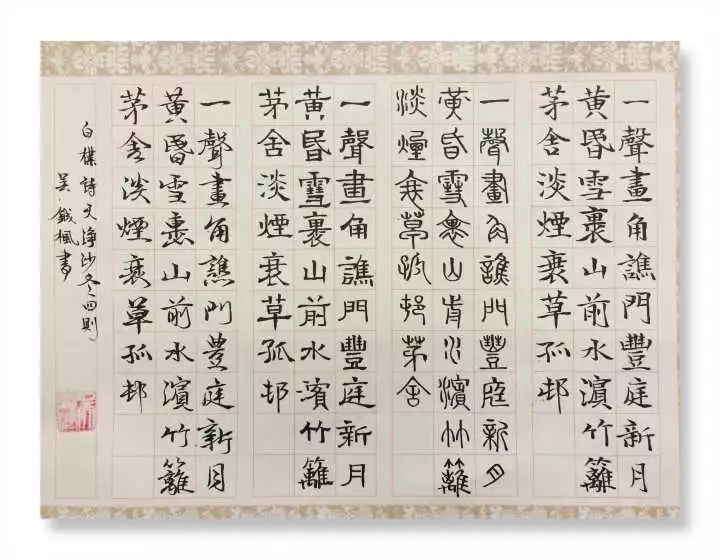 一聲畫角譙門豐庭新月
黃昏雪裏山前水濱竹籬
茅舍淡煙衰草孤邨
一聲畫角譙門豐庭新月
黃昏雪裏山前水濱竹籬
淡煙衰草孤邨茅舍
一聲畫角譙門豐庭新月
黃昏雪裏山前水濱竹籬
茅舍淡煙衰草孤邨
一聲畫角譙門豐庭新月
黃昏雪裏山前水濱竹籬
茅舍淡煙衰草孤邨
白樸詩天淨沙冬四則
吴楓書